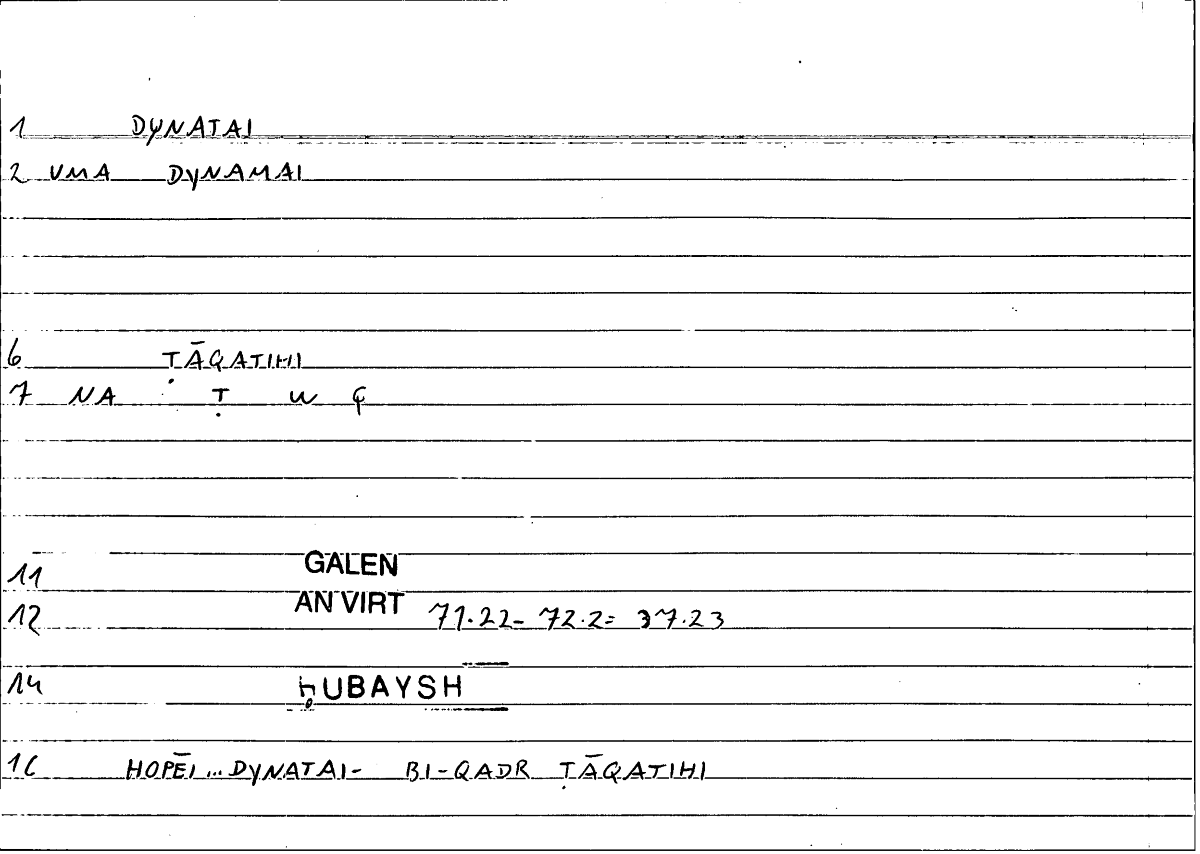 1 DYNATAI
2 VMA DYNAMAI
6 ṬĀQATIHI
7 NA Ṭ W Q
11 GALEN
12 AN VIRT 71.22- 72.2= 37.23
14 ḤUBAYSH
16 HOPĒI...DYNATAI- BI-QADR ṬĀQATIHI